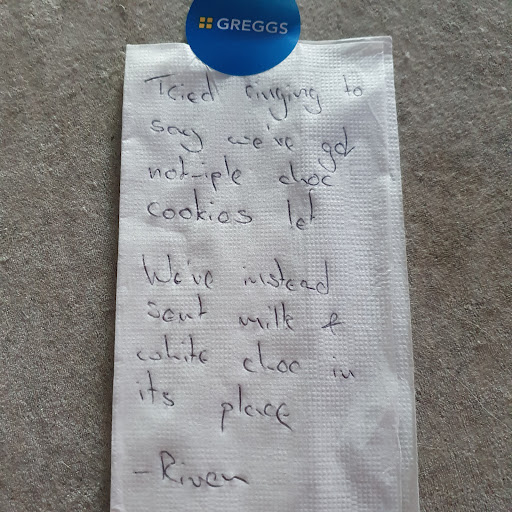 GREGGS
Tried ringing to
say we've got
not-iple choc
cookies let
We've instead
sent milk &
white choc in
its place
-Riven